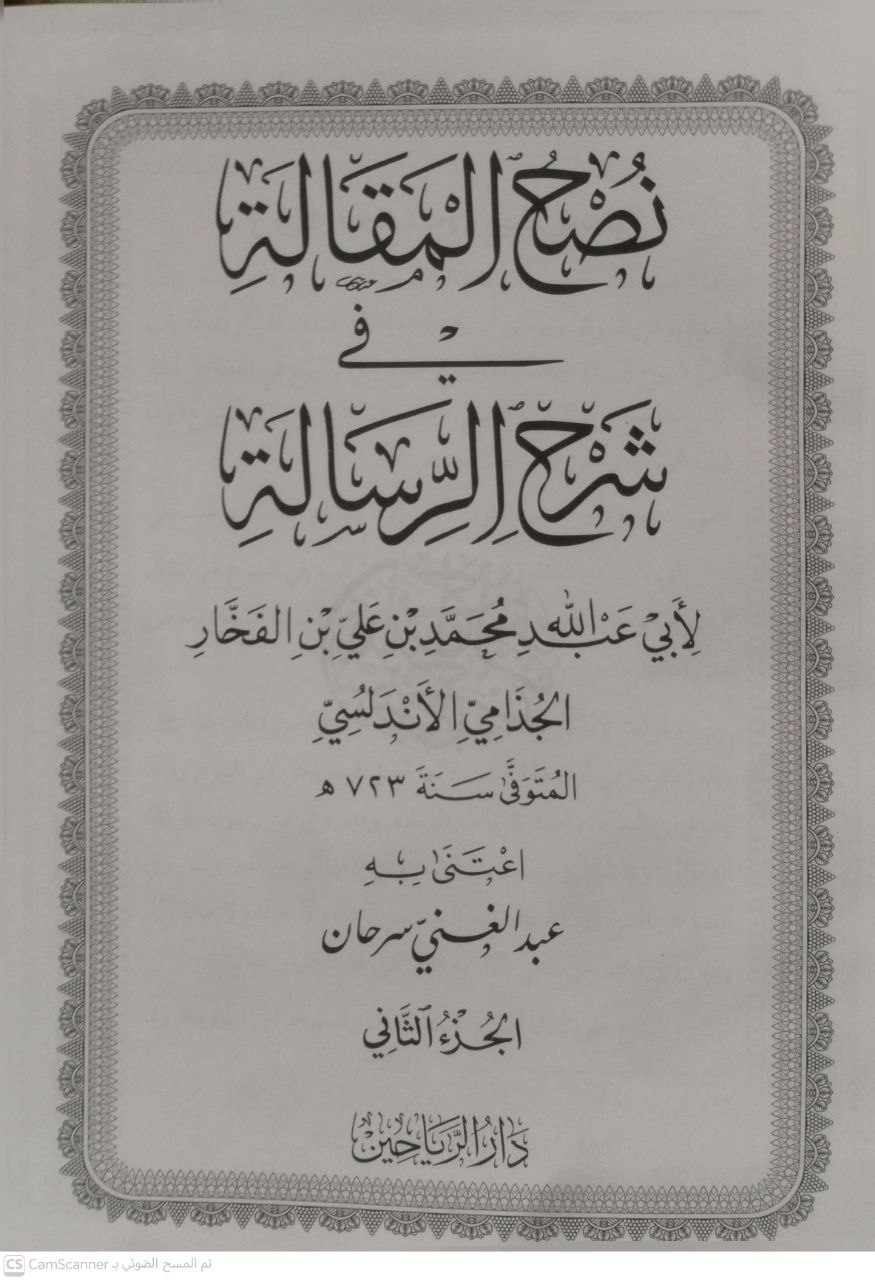 نُصْحُ المَقَالَةِ
فِي
شَرْحِ الرِّسَالَةِ
لِأَبِيْ عَبْدِ اللهِ مُحَمَّدِ بْنِ عَلِيِّ بْنِ الفَخَّارِ
الجُذَامِيِّ الأَنْدَلُسِيِّ
المُتَوَفَّى سَنَةَ ٧٢٣ ه
اعْتَنَى بِهِ
عبد الغني سرحان
الجُزْءُ الثَّانِي
دَارُ الرَّيَاحِين
CS CamScanner تم المسح الضوئي بـ